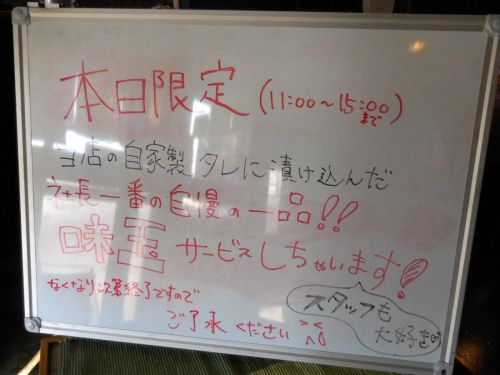 本日限定 (11:00~15:00まで)
当店の自家製タレに漬け込んだ
社長一番の自慢の一品!!
味玉サービスしちゃいます!
なくなり次第終了ですので
ご了承ください
スタッフも
大好き